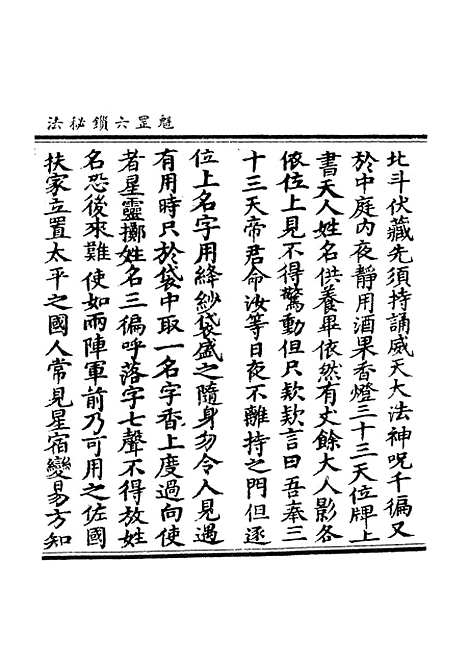 魁罡六鎖秘法
北斗伏藏先須持誦威天大法神呪千徧又
於中庭内夜靜用酒果香燈三十三天位牌上
書天人姓名供養畢依然有丈餘大人影各
依位上見不得驚動但只欵欵言曰吾奉三
十三天帝君命汝等日夜不離持之門但逐
位上名字用絳紗袋盛之隨身勿令人見遇
有用時只於袋中取一名字香上度過向使
者星靈擲姓名三徧呼落字七聲不得放姓
名恐後來難使如兩陣軍前乃可用之佐國
扶家立置太平之國人常見星宿變易方知